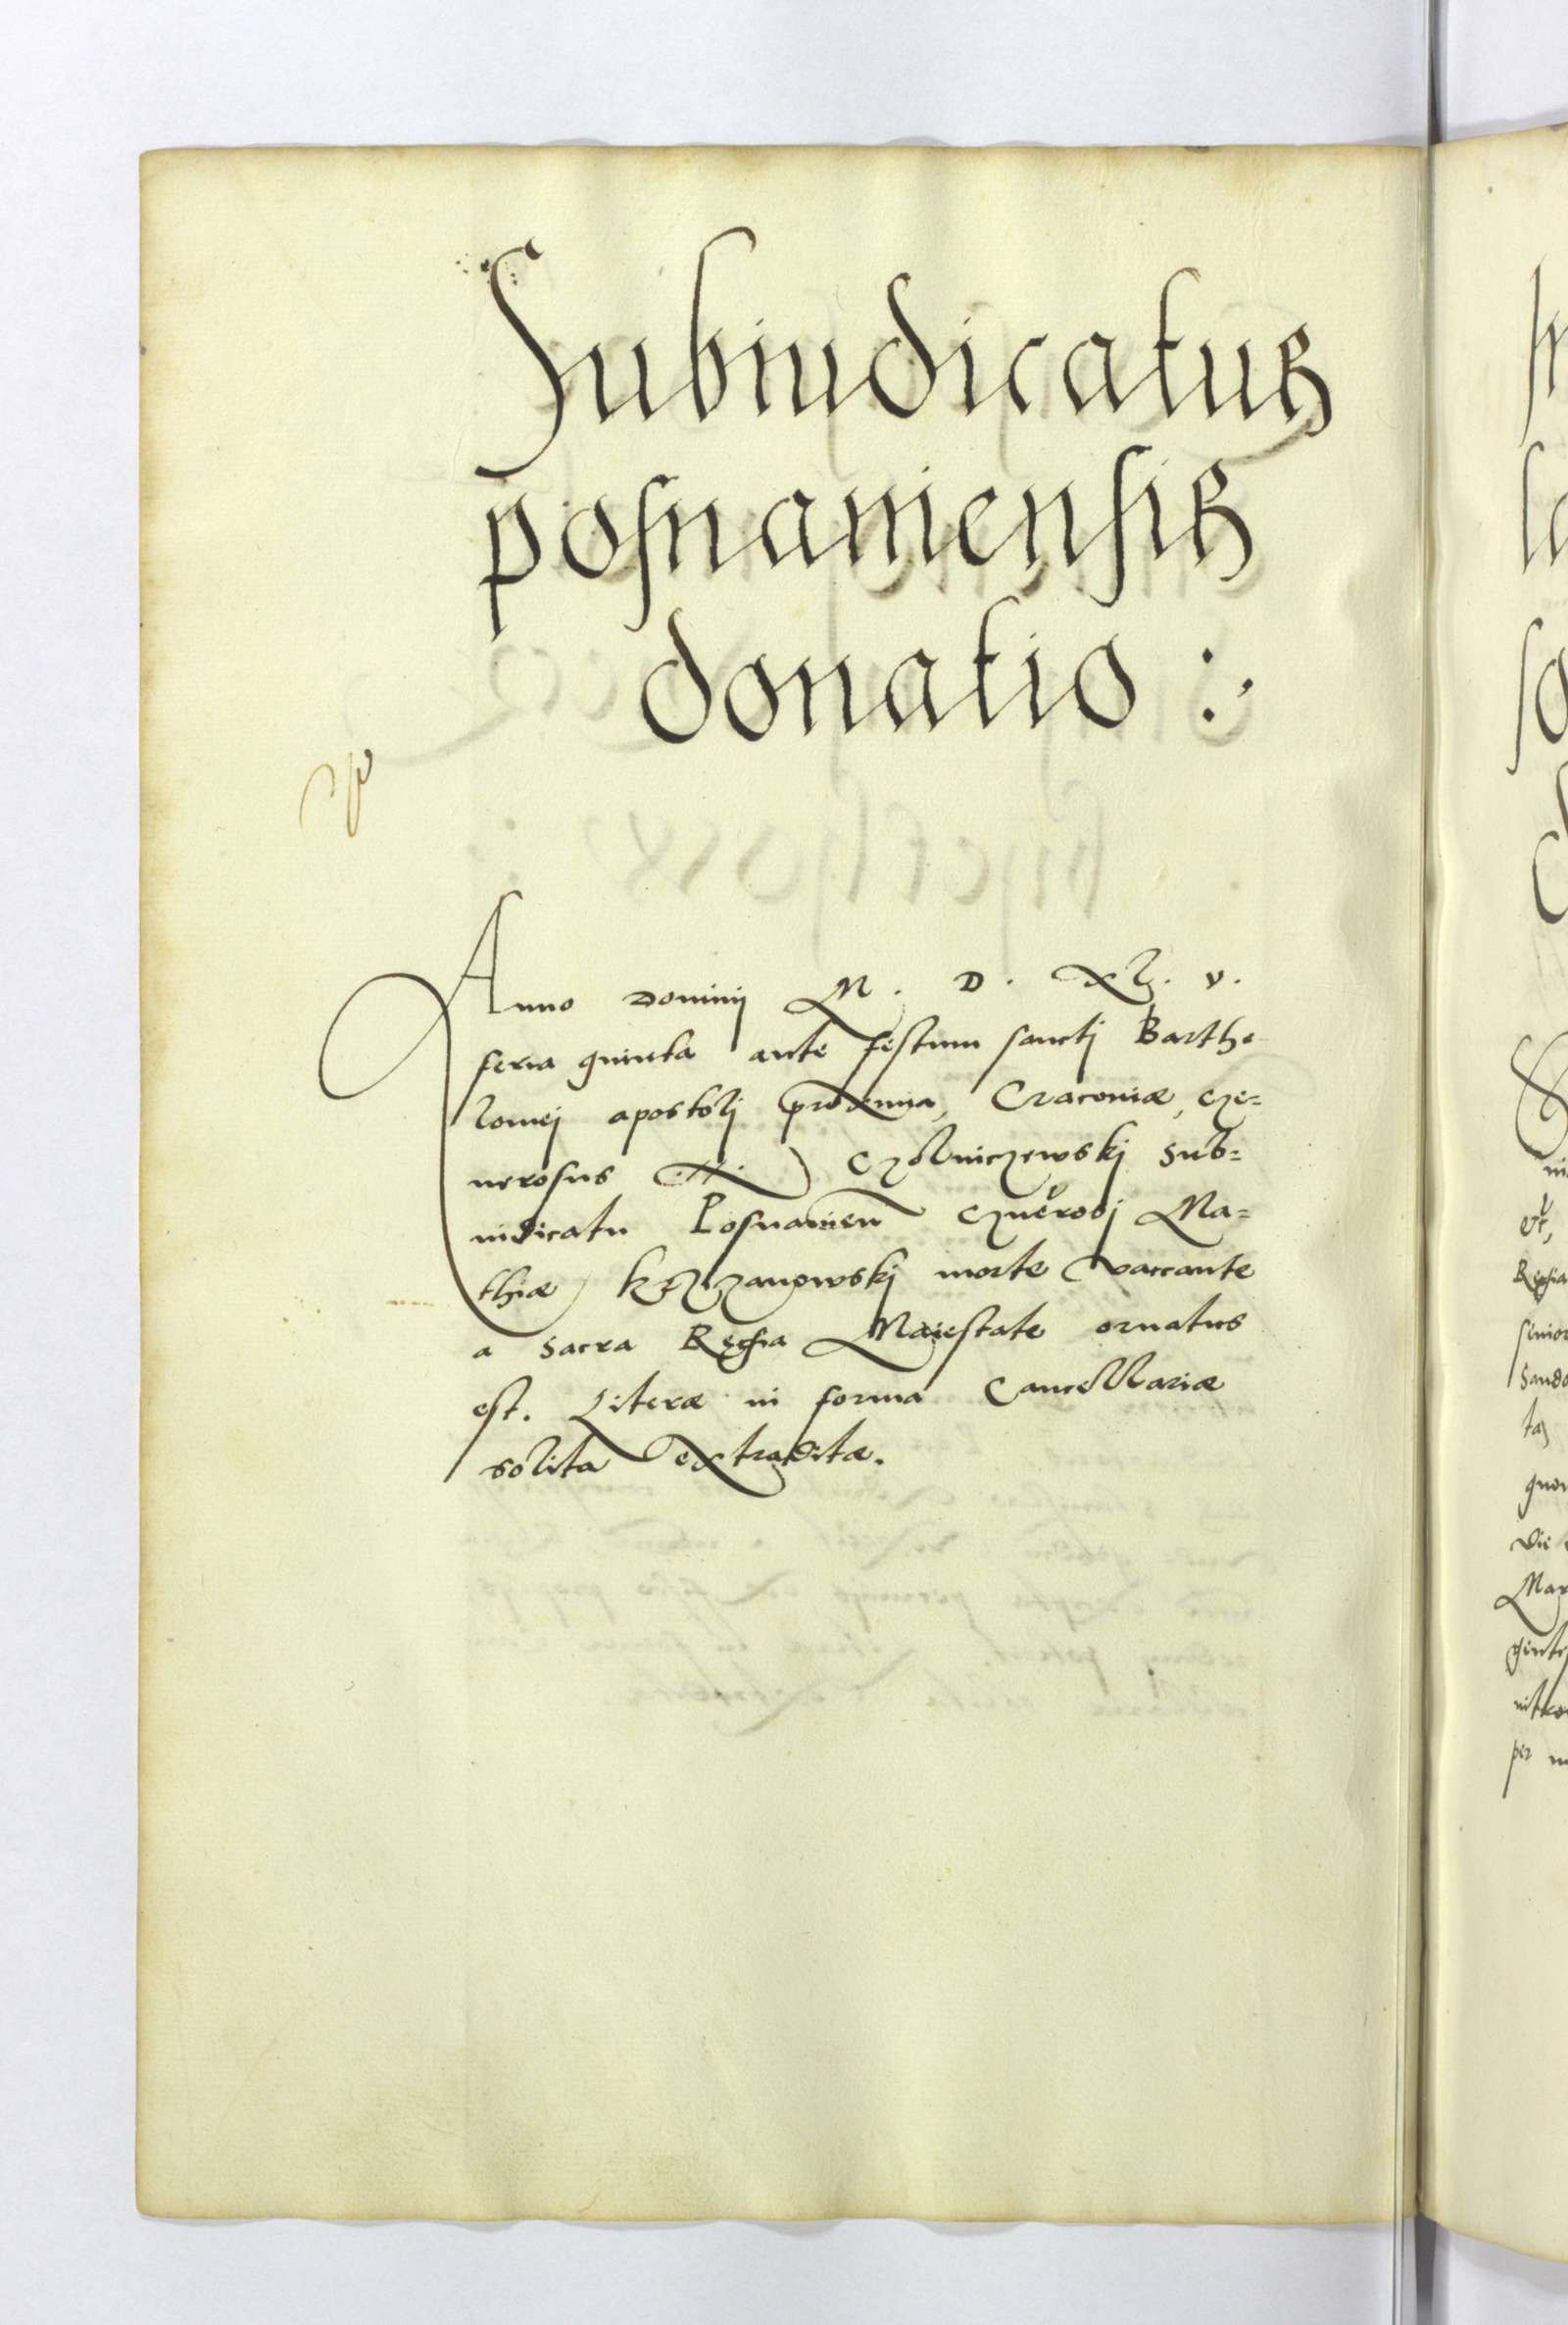 Subiudicatus
posnaniensis
donatio :
Anno Dominij M. D. XL. V.
feria quinta ante festum sanctj Bartho
lomej apostolj proxima, Cracoviæ, Ge=
nerosus N. Czolniczewskj Sub=
iudicatu Posnanien Generosj Ma=
thiæ Krzizanowskj morte vaccante
a Sacra Regia Maiestate ornatus
est. Literæ in forma Cancellariæ
solita extraditæ.